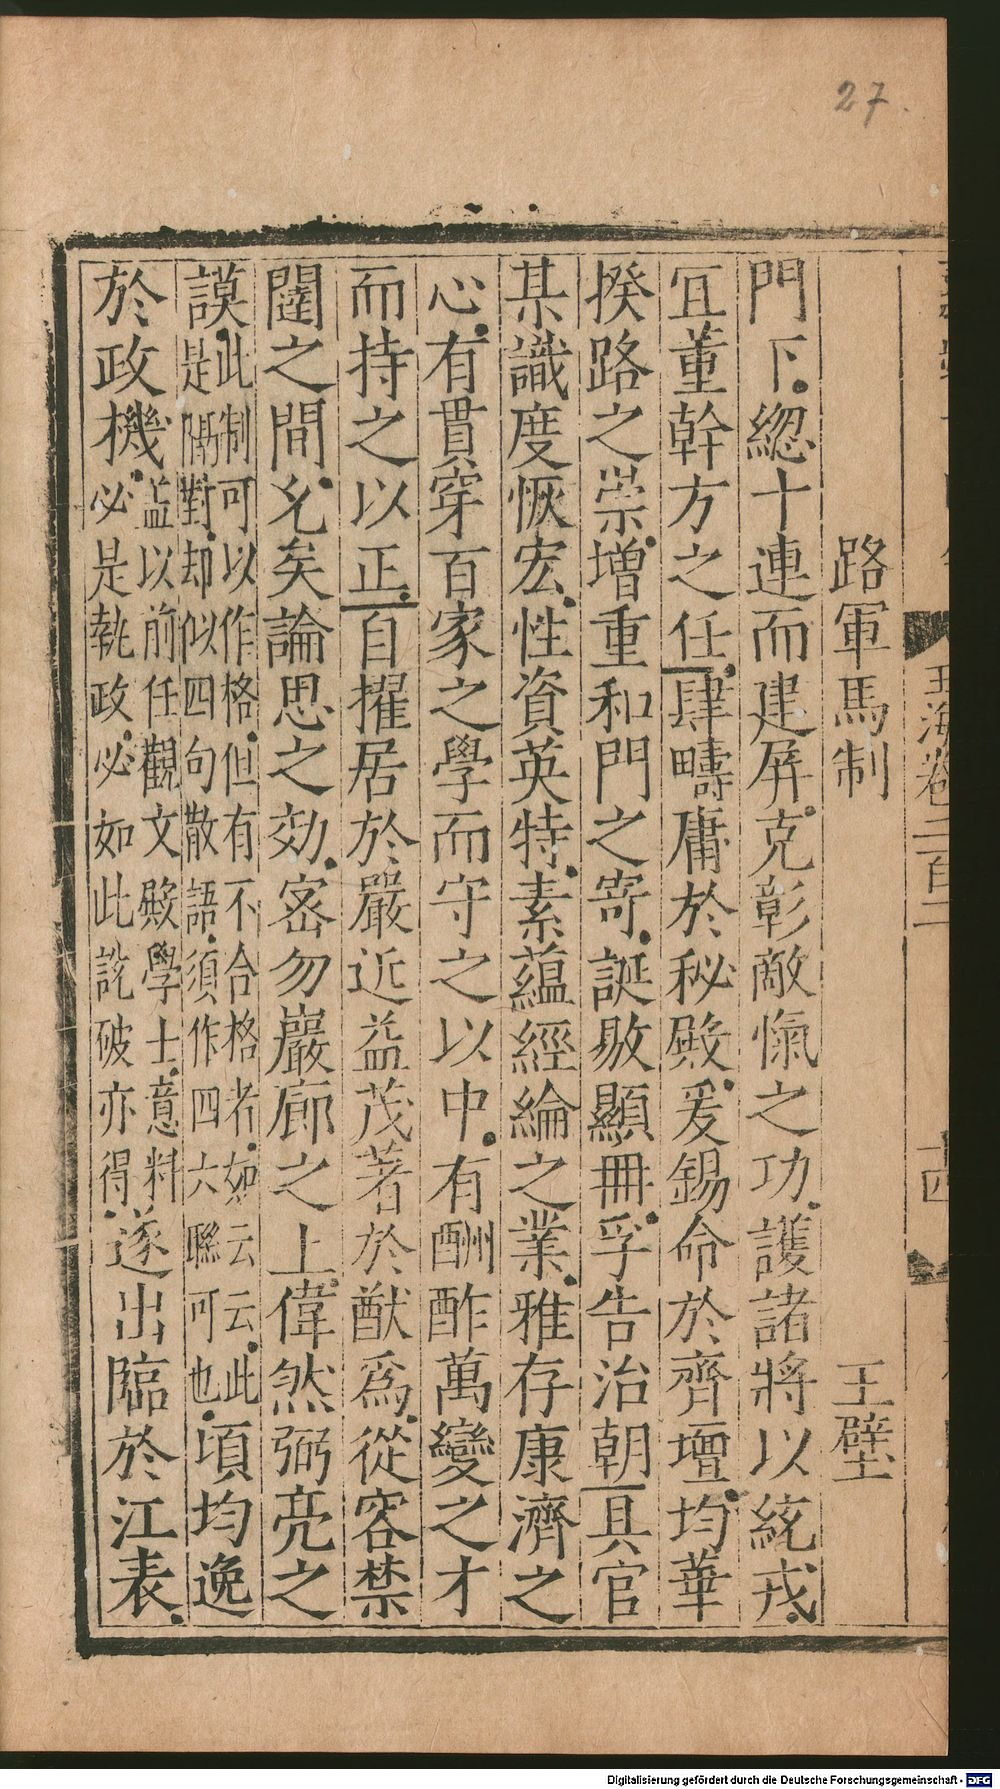 27.
玉海卷二百二
十四
路軍馬制 王壁
門下總十連而建屏克彰敵愾之功護諸將以統戎
宜董幹方之任肆疇庸於秘殿爰錫命於齊壇均華
揆路之崇增重和門之寄誕敭顯冊孚告治朝具官
某識度恢宏性資英特素蘊經綸之業雅存康濟之
心有貫穿百家之學而守之以中有酬酢萬變之才
而持之以正自擢居於嚴近益茂著於猷爲從容禁
闥之間允矣論思之効密勿巖廊之上偉然弼亮之
謨此制可以作格但有不合格者如云云此是隔對却似四句散語須作四六聯可也頃均逸
於政機蓋以前任觀文殿學士意料必是執政必如此說破亦得遂出臨於江表
Digitalisierung gefördert durch die Deutsche Forschungsgemeinschaft - DFG